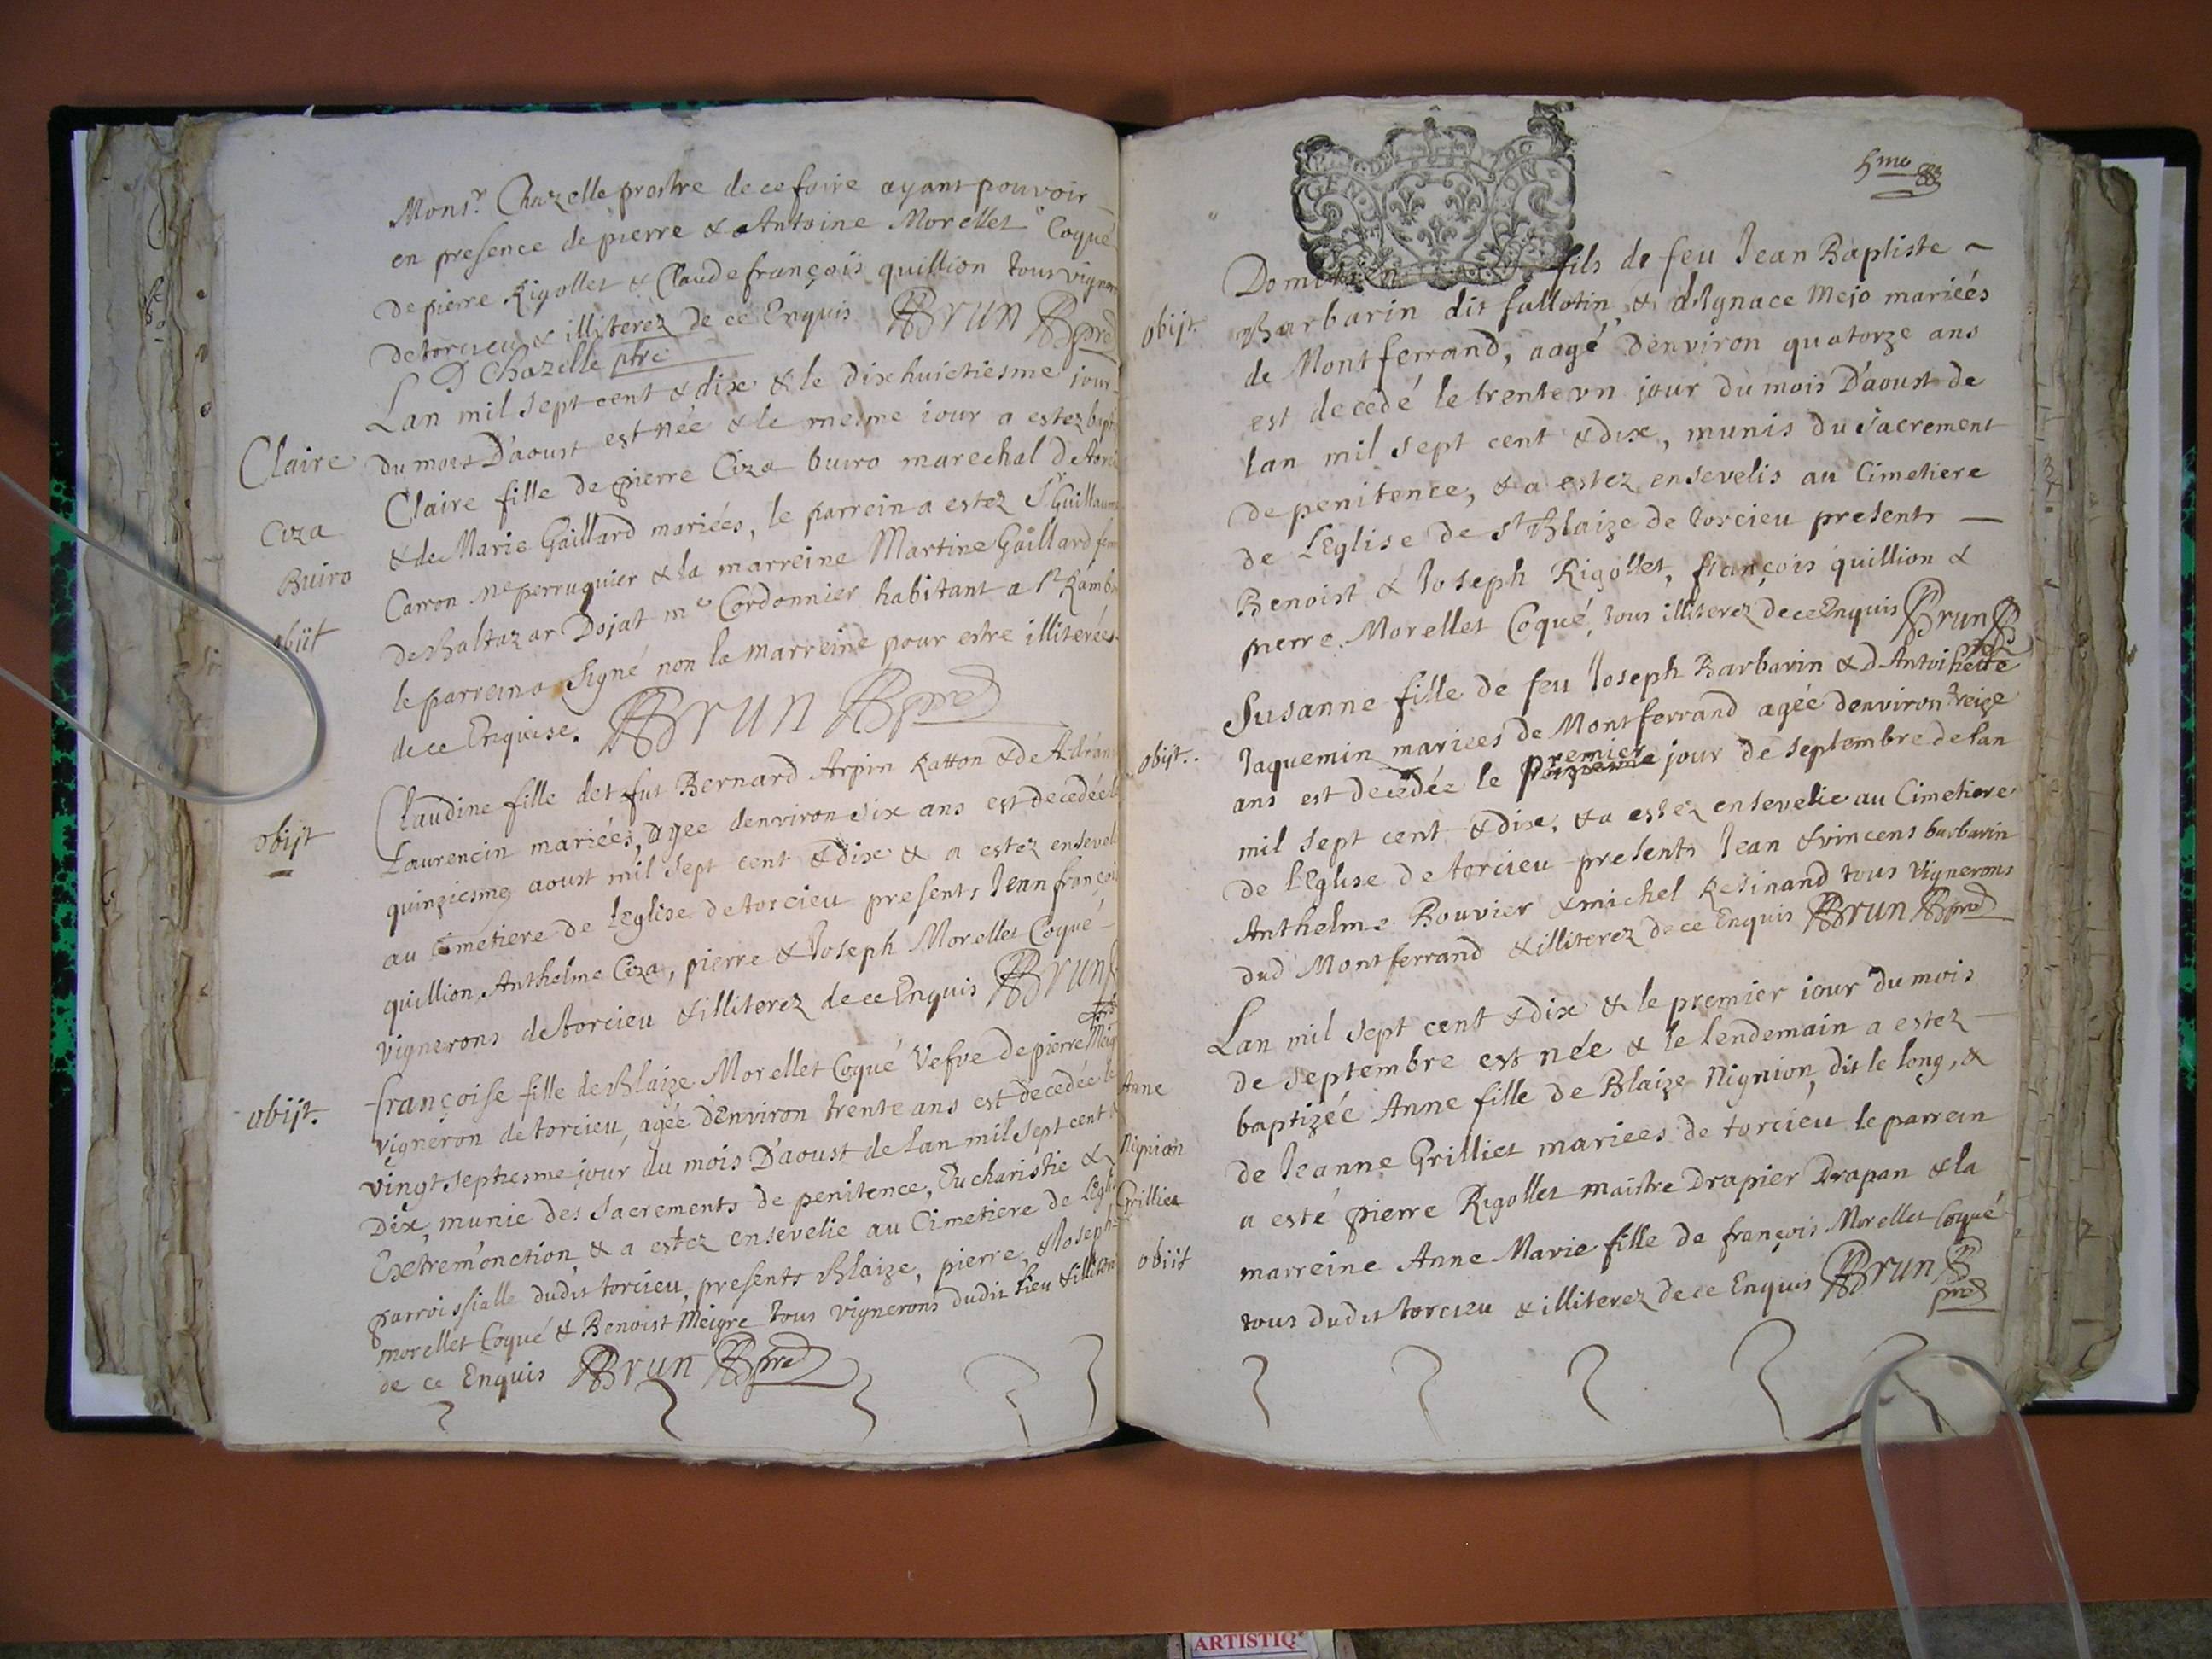 Monsr. Chazelle prestre de ce faire ayant pouvoir
en presence de pierre & Antoine Morellet Coqué
de pierre Rigollet & Claude françois quillion tous vignerons
de torcieu & illiterez de ce Enquis Brun
Chazelle ptre
Lan mil sept cent & dix & le dixhuictiesme jour
du mois D'aoust est née & le mesme iour a estez
Claire fille de pierre Ciza buiro marechal de
& de Marie Gaillard mariées, le parrein a estez Sr. Guillaume
Carron Me perruquier & la marreine Martine Gaillard
de Baltazar Dojat me Cordonnier habitant a St
le parrein a signé non la marreine pour estre illiterée
de ce Enquise. Brun
Claire
Ciza
Buiro
obijt
Claudine fille de Bernard Arpin Ratton & de
Laurencin mariées, agee denviron six ans est decedée
quinziesme aoust mil sept cent & dix & a estez
au Cimetiere de leglise de torcieu presents Jean françois
quillion, Anthelme Ciza, pierre & Joseph Morellet Coqué
vignerons de torcieu & illiterez de ce Enquis Brun
obijt
françoise fille de Blaize Morellet Coqué Vefve de pierre
vigneron de torcieu, agée denviron trente ans est decedée le
vingt septiesme jour du mois D'aoust de lan mil sept cent &
Dix, munie des Sacrements de penitence, Eucharistie &
Extremonction, & a estez ensevelie au Cimetiere de
parroissialle dudit torcieu, presents Blaize, pierre, & Joseph
morellet Coqué & Benoist Meigre tous vignerons dudit lieu
de ce Enquis Brun
obijt.
5me
fils de feu Jean Baptiste
Barbarin dit fallotin & dIgnace Mejo mariéés
de Montferrand, aagé denviron quatorze ans
est decedé le trente vn jour du mois D'aoust de
lan mil sept cent & dix, munis du sacrement
de penitence, & a estez ensevelis au Cimetiere
de LEglise de St Blaize de torcieu presents
Benoist & Joseph Rigollet, françois quillion &
pierre Morellet Coqué, tous illiterez de ce Enquis Brun
obijt.
Susanne fille de feu Joseph Barbarin & dAntoinette
Jaquemin mariees de Montferrand agéé denviron treize
ans est decedée le premier jour de septembre de lan
mil sept cent & dix, & a estez ensevelie au Cimetiere
de lEglise de torcieu presents Jean & vincens barbarin
Anthelme Bouvier & michel Resinand tous Vignerons
dud Montferrand & illiterez de ce Enquis Brun
obijt.
Lan mil sept cent & dix & le premier iour du mois
de septembre est née & le lendemain a estez
baptizée Anne fille de Blaize Nignion, dit le long, &
de Jeanne Grilliet mariees de torcieu le parrein
a esté pierre Rigollet maistre Drapier Drapan & la
marreine Anne Marie fille de françois Morellet Coqué
tous dudit torcieu & illiterez de ce Enquis Brun
Anne
Nignion
Grilliet
obiit
ARTISTIQ